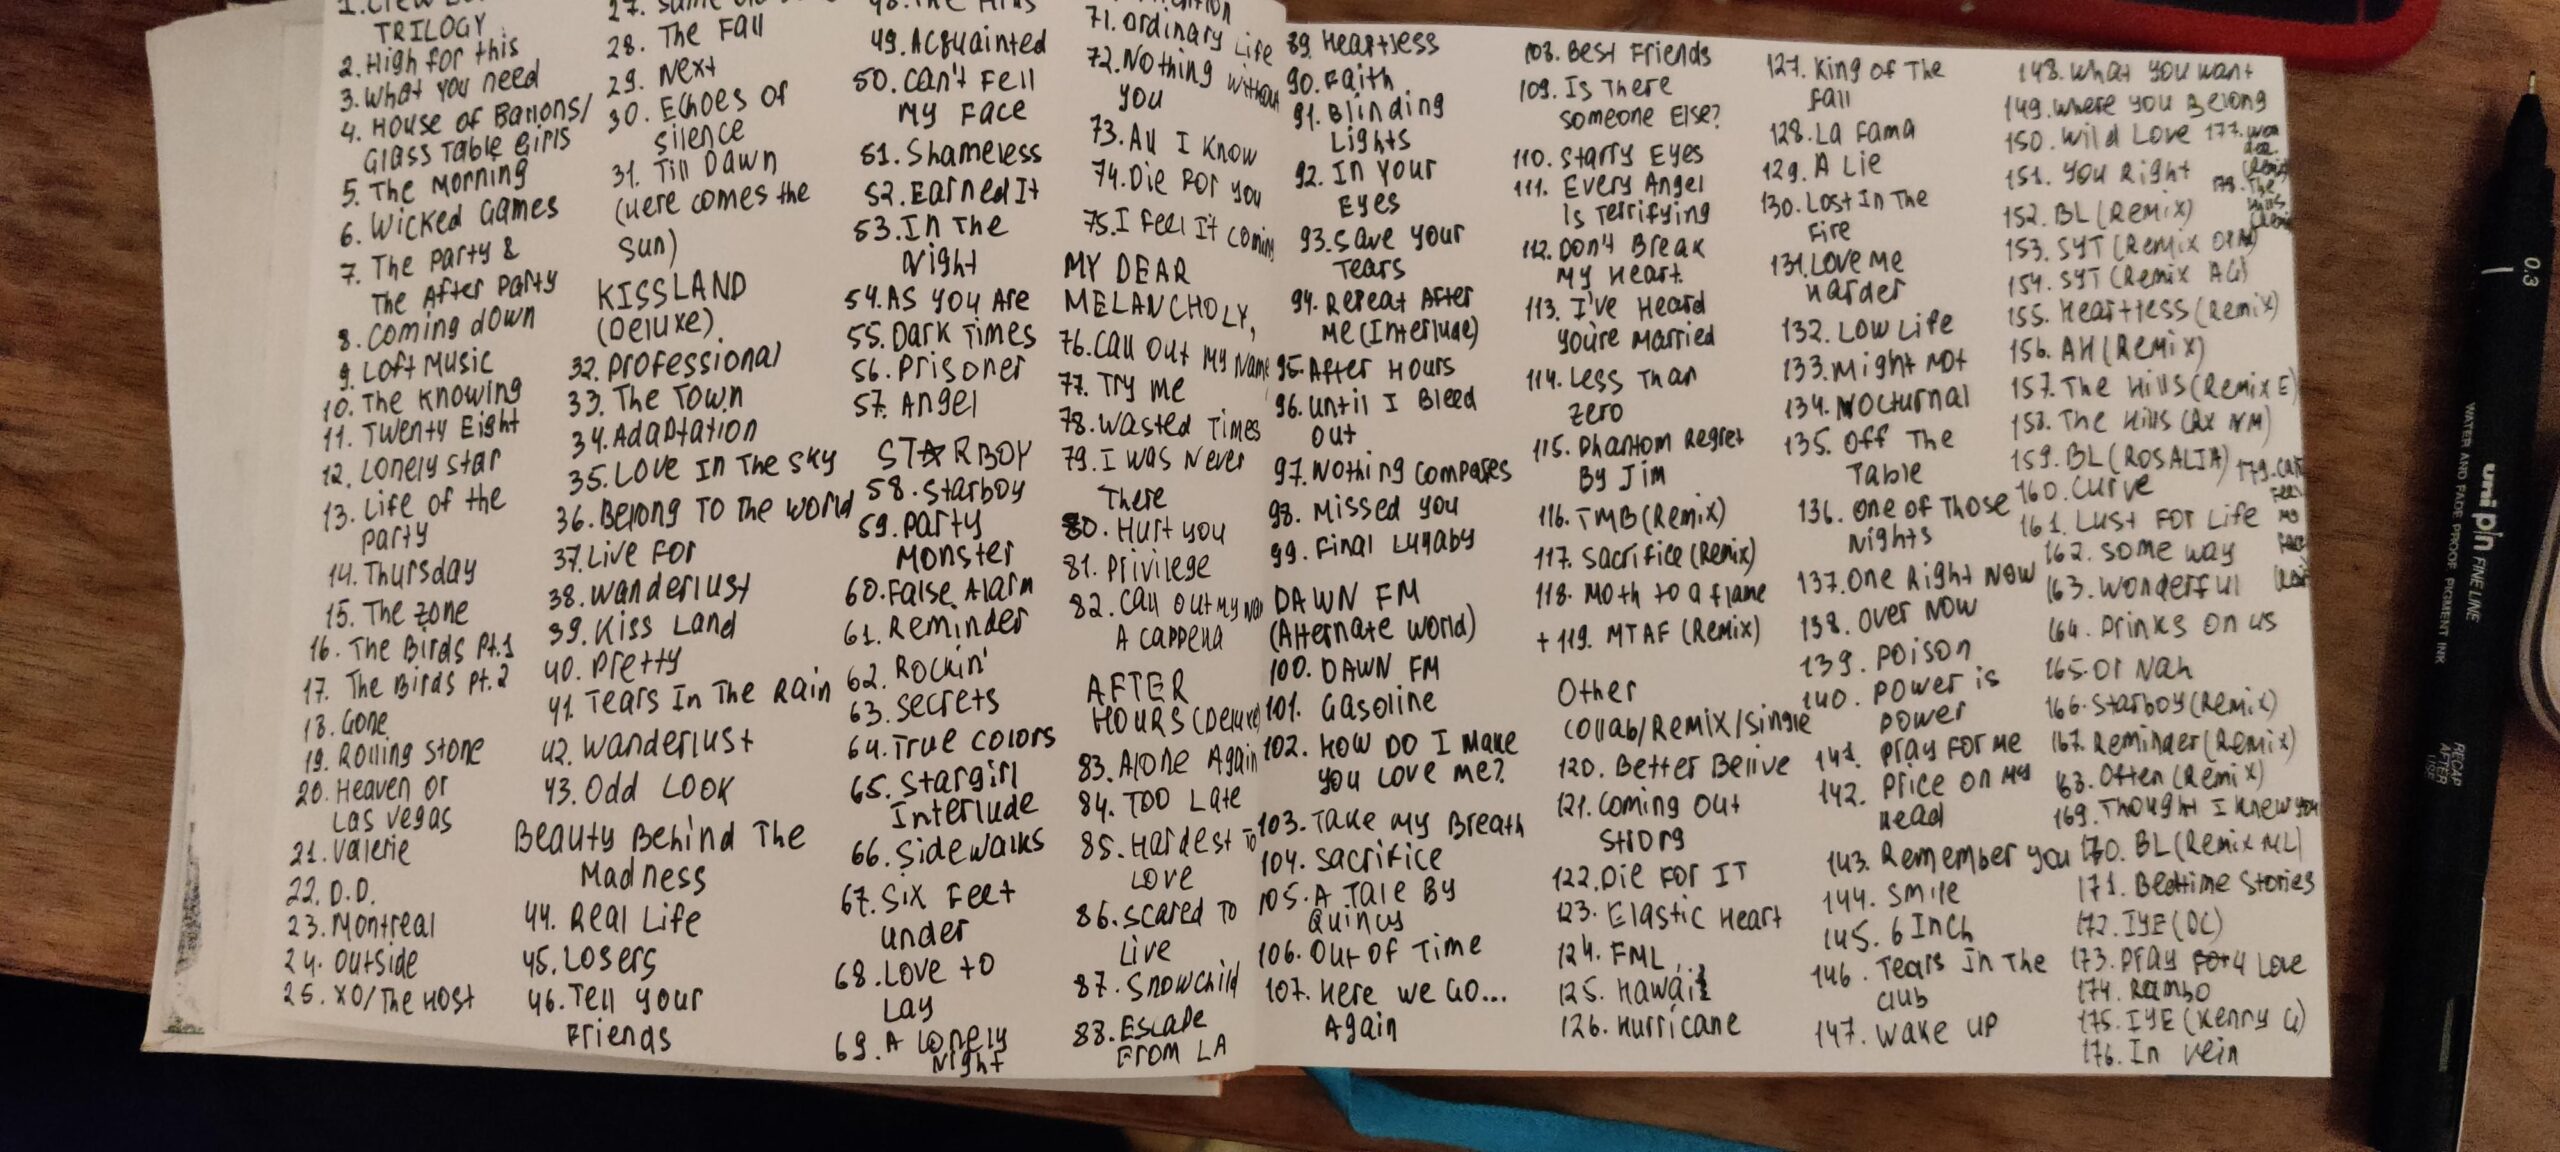 TRILOGY
2. High for this
3. What you need
4. House of Ballons/
Glass Table Girls
5. The Morning
6. Wicked Games
7. The Party &
The After Party
8. Coming down
9. Loft Music
10. The Knowing
11. Twenty Eight
12. Lonely star
13. Life of the
Party
14. Thursday
15. The zone
16. The Birds Pt.1
17. The Birds Pt.2
18. Gone
19. Rolling Stone
20. Heaven or
Las vegas
21. Valerie
22. D.D.
23. Montreal
24. Outside
25. XO/The Host
28. The Fall
29. Next
30. Echoes of
silence
31. Till Dawn
(Here comes the
sun)
KISSLAND
(Deluxe)
32. Professional
33. The Town
34. Adaptation
35. Love In The Sky
36. Belong To The world
37. Live For
38. Wanderlust
39. Kiss Land
40. Pretty
41. Tears In The Rain
42. Wanderlust
43. Odd Look
Beauty Behind The
Madness
44. Real Life
45. Losers
46. Tell Your
Friends
49. Acquainted
50. Can't Fell
My Face
51. Shameless
52. Earned It
53. In The
Night
54. As You Are
55. Dark Times
56. Prisoner
57. Angel
STARBOY
58. Starboy
59. Party
Monster
60. False Alarm
61. Reminder
62. Rockin'
63. Secrets
64. True Colors
65. Stargirl
Interlude
66. Sidewalks
67. Six Feet
Under
68. Love to
Lay
69. A lonely
Night
71. Ordinary Life
72. Nothing without
you
73. All I Know
74. Die For You
75. I Feel It Coming
MY DEAR
MELANCHOLY,
76. Call Out My Name
77. Try me
78. Wasted Times
79. I Was Never
There
80. Hurt you
81. Privilege
82. Call Out My
A cappella
AFTER
HOURS (Deluxe)
83. Alone Again
84. Too Late
85. Hardest To
Love
86. Scared To
Live
87. Snowchild
88. Escape
From LA
89. Heartless
90. Faith
91. Blinding
Lights
92. In Your
Eyes
93. Save Your
Tears
94. Repeat After
Me (Interlude)
95. After Hours
96. Until I Bleed
Out
97. Nothing Compares
98. Missed You
99. Final Lullaby
DAWN FM
(Alternate World)
100. DAWN FM
101. Gasoline
102. How DO I Make
you Love Me?
103. Take My Breath
104. Sacrifice
105. A Tale By
Quincy
106. Out of Time
107. Here we Go...
Again
108. Best Friends
109. Is There
Someone Else?
110. Starry Eyes
111. Every Angel
Is Terrifying
112. Don't Break
My Heart
113. I've Heard
you're Married
114. Less Than
Zero
115. Phantom Regret
By Jim
116. TMB (Remix)
117. Sacrifice (Remix)
118. Moth to a flame
+ 119. MTAF (Remix)
Other
Collab/Remix/Single
120. Better Belive
121. Coming Out
Strong
122. Die For IT
123. Elastic Heart
124. FML
125. Hawaii
126. Hurricane
127. King of The
Fall
128. La Fama
129. A Lie
130. Lost In The
Fire
131. Love Me
Harder
132. Low Life
133. Might Not
134. Nocturnal
135. Off The
Table
136. One of Those
Nights
137. One Right Now
138. Over Now
139. Poison
140. Power is
Power
141. Pray For Me
142. Price on My
Head
143. Remember you
144. Smile
145. 6 Inch
146. Tears In The
Club
147. Wake Up
148. What You want
149. Where You Belong
150. Wild Love
151. You Right
152. BL (Remix)
153. SYT (Remix OPN)
154. SYT (Remix AG)
155. Heartless (Remix)
156. AH (Remix)
157. The Hills (Remix E)
158. The Hills (Rx NM)
159. BL (ROSALIA)
160. Curve
161. Lust For Life
162. Some way
163. Wonderful
164. Drinks On us
165. Or Nah
166. Starboy (Remix)
167. Reminder (Remix)
168. Often (Remix)
169. Thought I Knew You
170. BL (Remix ML)
171. Bedtime Stories
172. IYE (DC)
173. Pray 4 Love
174. Rambo
175. IYE (Kenny G)
176. In vein
uni pin FINE LINE
WATER AND FADE PROOF PIGMENT INK
0.3
RECAP
AFTER
USE